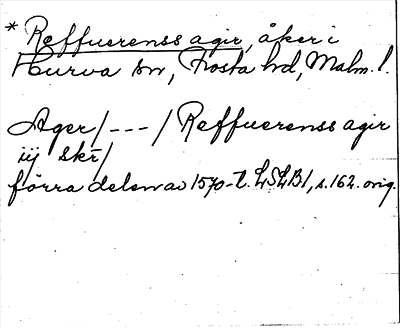 * Reffuerenss agir, åker i
Hurva sn, Frosta hd, Malm. l.
Ager/---/Reffuerenss agir
iij skr/
förra delen av 1570-t. LSLB1, s. 162. orig.